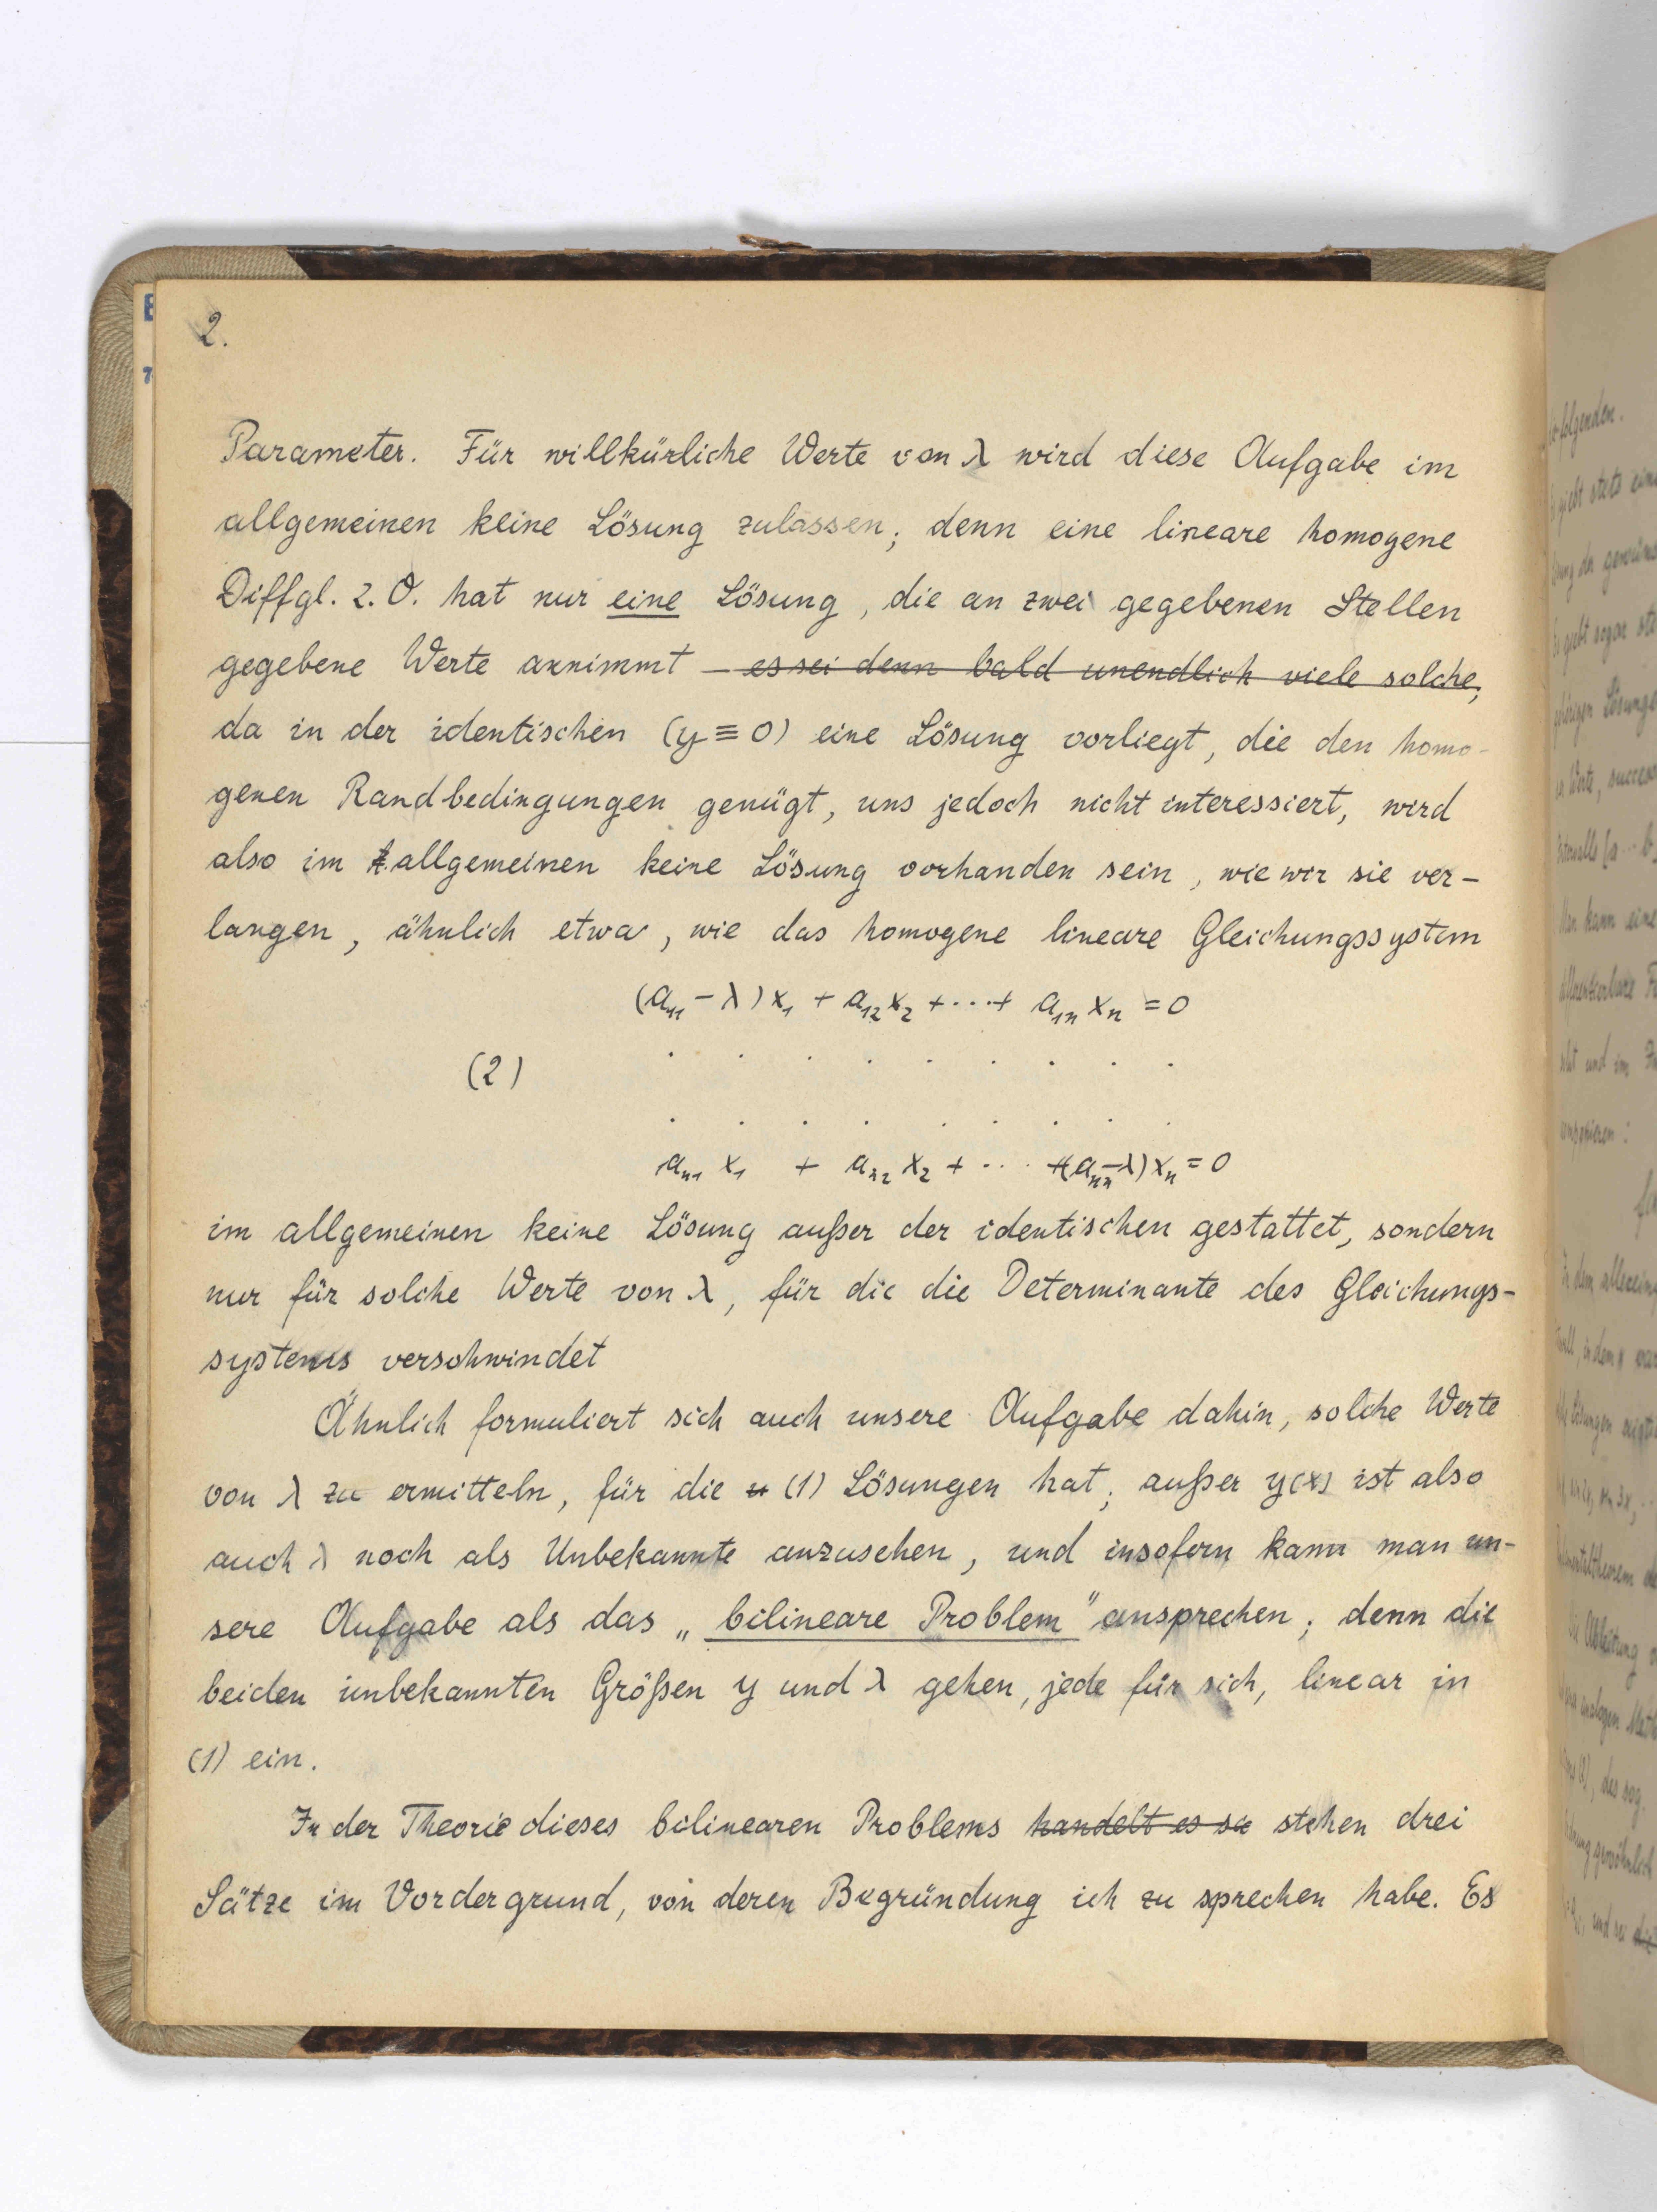 2.
Parameter. Für willkürliche Werte von λ wird diese Aufgabe im
allgemeinen keine Lösung zulassen; denn eine lineare homogene
Diffgl. 2. O. hat nur eine Lösung, die an zwei gegebenen Stellen
gegebene Werte annimmt – es sei denn bald unendlich viele solche;
da in der identischen (y ≡ 0) eine Lösung vorliegt, die den homo-
genen Randbedingungen genügt, uns jedoch nicht interessiert, wird
also im allgemeinen keine Lösung vorhanden sein, wie wir sie ver-
langen, ähnlich etwa, wie das homogene lineare Gleichungssystem
(a₁₁ − λ) x₁ + a₁₂ x₂ + ··· + a₁ₙ xₙ = 0
(2) . . . . . . . . .
. . . . . . . . .
aₙ₁ x₁ + aₙ₂ x₂ + ··· + (aₙₙ − λ) xₙ = 0
im allgemeinen keine Lösung außer der identischen gestattet, sondern
nur für solche Werte von λ, für die die Determinante des Gleichungs-
systems verschwindet
Ähnlich formuliert sich auch unsere Aufgabe dahin, solche Werte
von λ zu ermitteln, für die (1) Lösungen hat; außer y(x) ist also
auch λ noch als Unbekannte anzusehen, und insofern kann man un-
sere Aufgabe als das „bilineare Problem" ansprechen; denn die
beiden unbekannten Größen y und λ gehen, jede für sich, linear in
(1) ein.
In der Theorie dieses bilinearen Problems handelt es sic stehen drei
Sätze im Vordergrund, von deren Begründung ich zu sprechen habe. Es